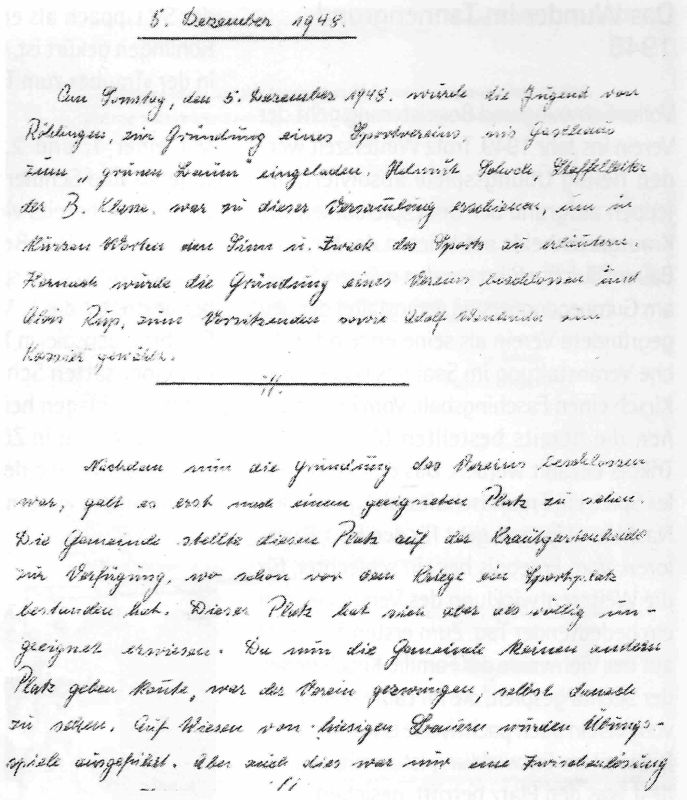 5. Dezember 1948.
Am Sonntag, den 5. Dezember 1948. wurde die Jugend von
Röhlingen, zur Gründung eines Sportvereins, ins Gasthaus
zum „grünen Baum" eingeladen. Helmut Staffelleiter
der B. Klasse. war zu dieser Versammlung erschienen, um in
kurzen Worten den Sinn u. Zweck des Sports zu erläutern.
Hernach wurde die Gründung eines Vereins beschlossen und
Rup, zum Vorsitzenden sowie Adolf zum
Kassier gewählt.
Nachdem nun die Gründung des Vereins beschlossen
war, galt es erst mal einen geeigneten Platz zu sehen.
Die Gemeinde stellte diesen Platz auf der Krautgartenheide
zur Verfügung, wo schon vor dem Kriege ein Sportplatz
bestunden hat. Dieser Platz hat sich aber als völlig un-
geeignet erwiesen. Da nun die Gemeinde keinen andern
Platz geben konte, war der Verein gezwungen, selbst danach
zu sehen. Auf Wiesen von hiesigen Bauern wurden Übungs-
spiele ausgeführt. Aber auch dies war nur eine Zwischenlösung